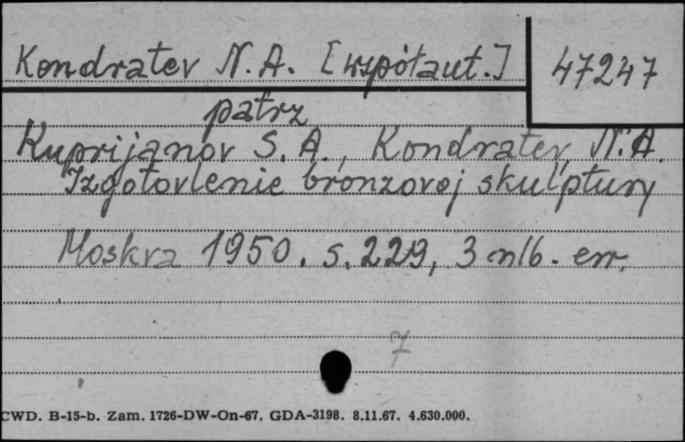 Kondratev N.A. [współaut.]
47247
patrz
Kuprijanov S.A., Kondratev, N.A.
Izgotovlenie bronzovoj skul'ptury
Moskva 1950. s. 229, 3 nlb. err.
7
CWD. B-15-b. Zam. 1726-DW-On-67. GDA-3198. 8.11.67. 4.630.000.